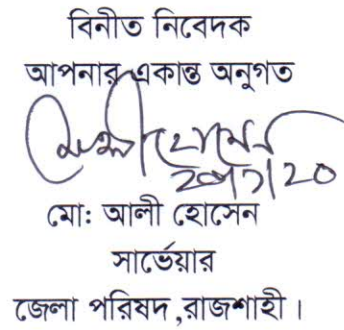 বিনীত নিবেদক
আপনার একান্ত অনুগত
মো: আলী হোসেন
সার্ভেয়ার
জেলা পরিষদ ,রাজশাহী ।